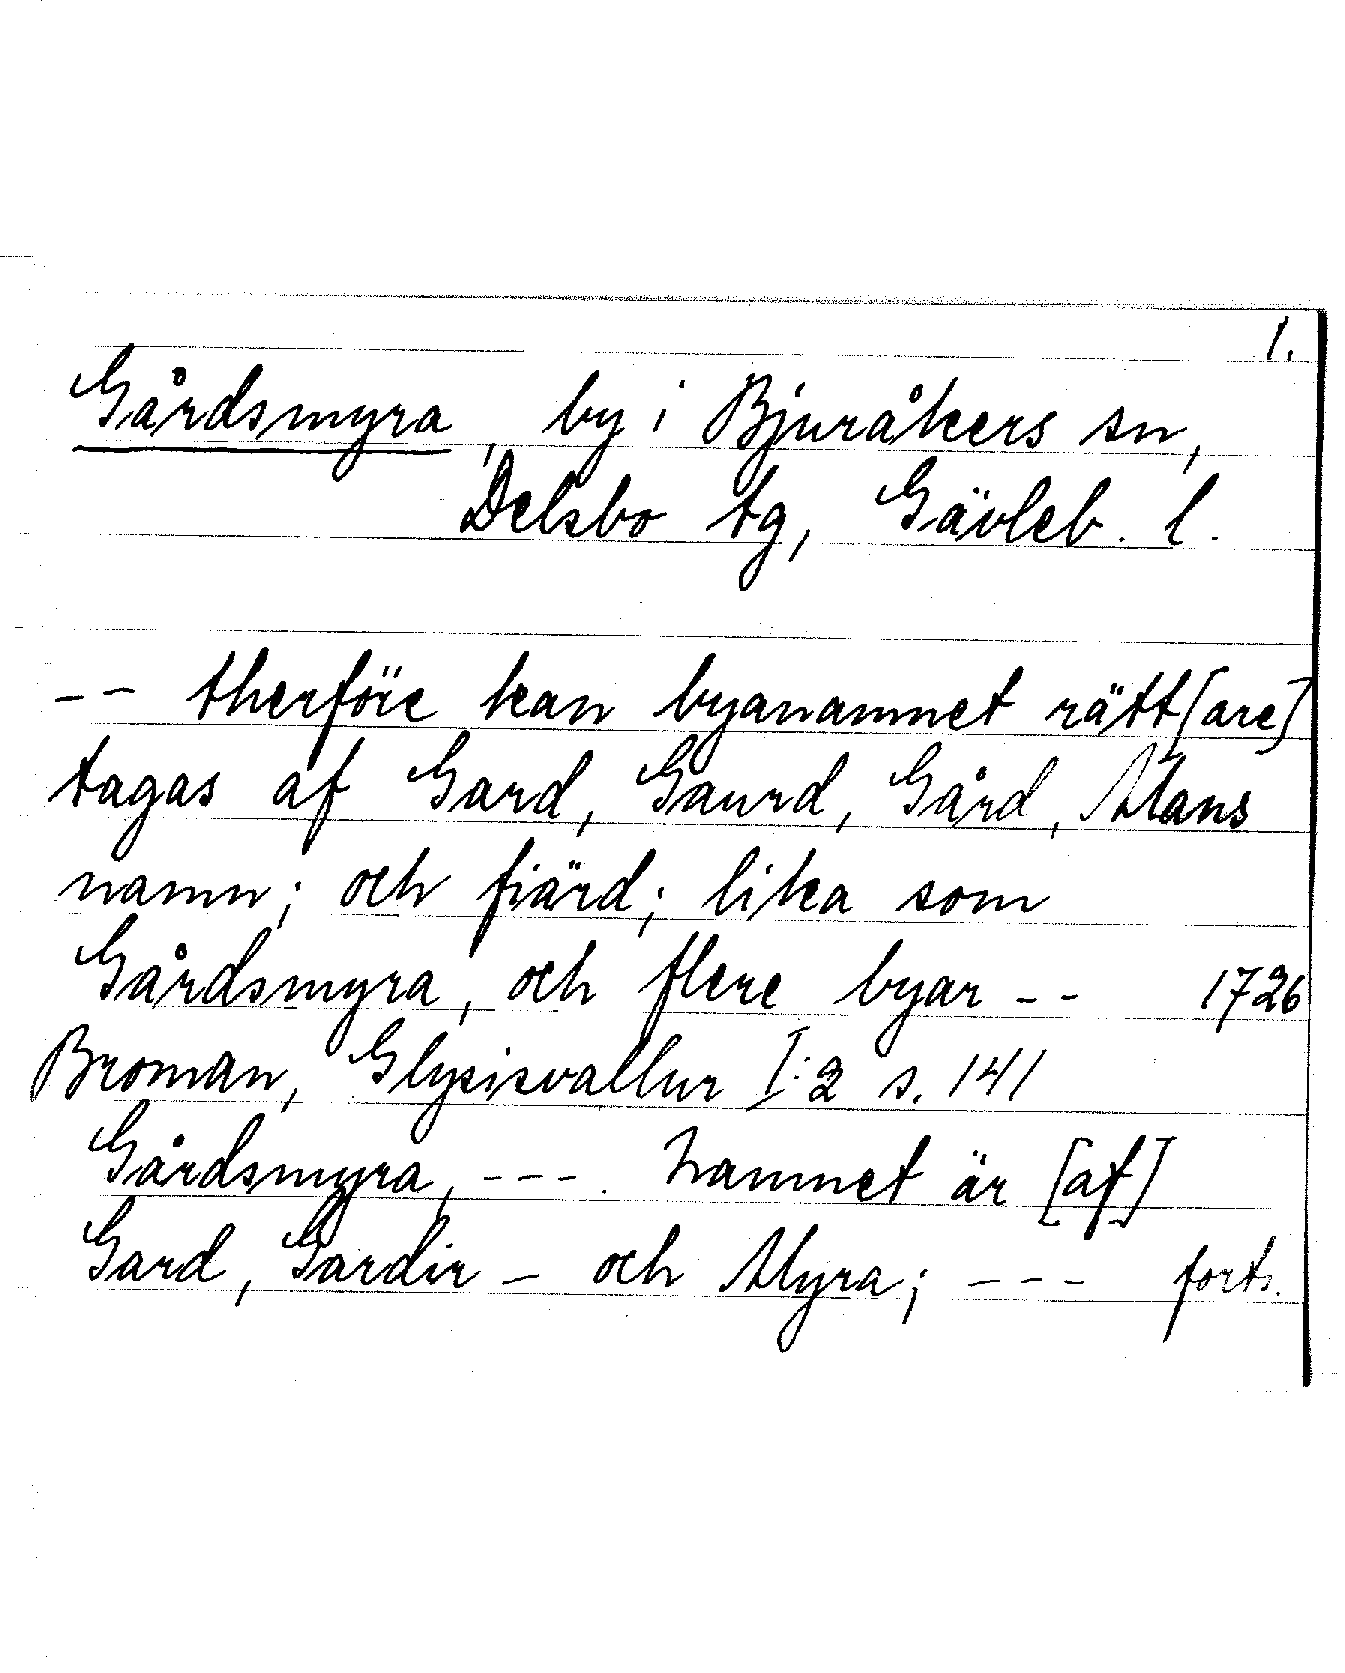 1.
Gårdsmyra, by i Bjuråkers sn,
Delsbo tg, Gävleb. l.
-- therföre kan byanamnet rätt[are]
tagas af Gard, Gaurd, Gård, Mans
namn; och fiärd; lika som
Gårdsmyra, och flere byar -- 1726
Broman, Glysisvallur I:2 s. 141
Gårdsmyra, ---. Namnet är [af]
Gard, Gardir - och Myra; --- forts.